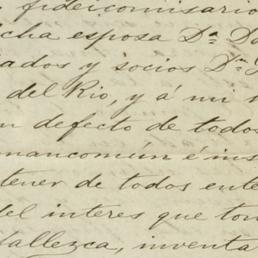 fideicomisario
cha esposa Dª D
ados y socios Dⁿ
del Rio, y á mi
defecto de todos
mancomún é ins
tener de todos ente
del interes que ton
fallezca, inventa